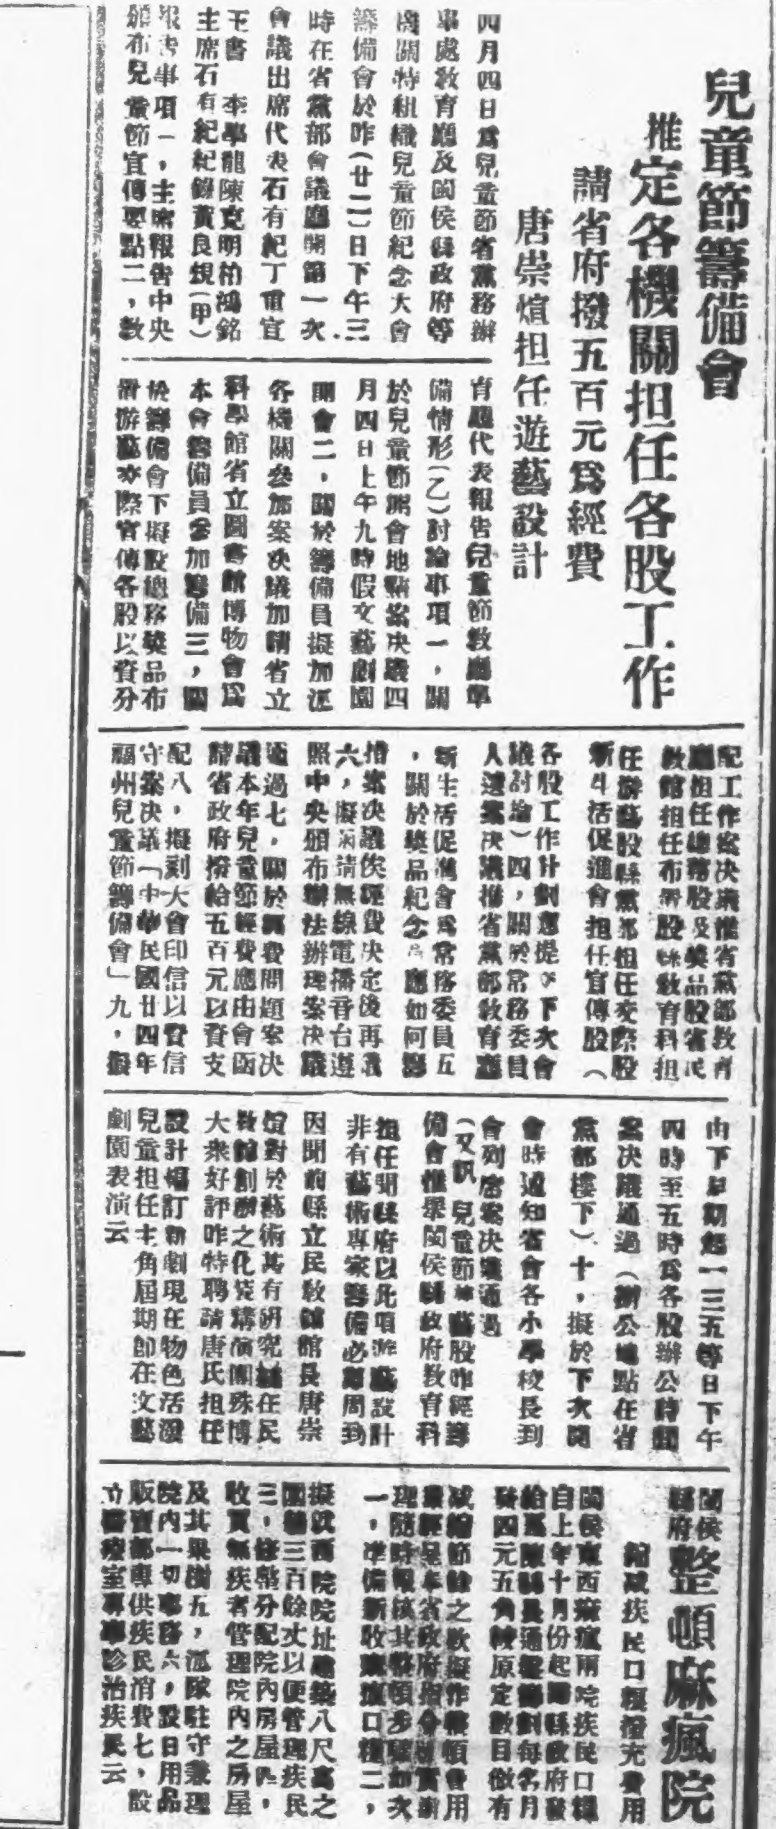 兒童節籌備會
推定各機關担任各股工作
請省府撥五百元爲經費
唐崇煊担任遊藝設計
四月四日爲兒童節省黨務辦
事處敎育廳及閩侯縣政府等
機關特組織兒童節紀念大會
籌備會於昨(廿二)日下午三
時在省黨部會議廳開第一次
會議出席代表石有紀丁重宣
王書 李學龍陳克明柏鴻銘
主席石有紀紀錄黃良規(甲)
報吿事項一，主席報吿中央
頒布兒童節宣傳要點二，敎
育廳代表報吿兒童節敎廳準
備情形(乙)討論事項一，關
於兒童節開會地點案決議四
月四日上午九時假文藝劇園
開會二，關於籌備員擬加派
各機關參加案決議加請省立
科學館省立圖書館博物會爲
本會籌備員參加籌備三，關
於籌備會下擬設總務獎品布
置游藝交際宣傳各股以資分
配工作案決議推省黨部敎育
廳担任總務股及獎品股省民
敎館担任布置股縣敎育科担
任游藝股縣黨部担任交際股
新生活促進會担任宣傳股(
各股工作計劃應提交下次會
議討論)四，關於常務委員
人選案決議推省黨部敎育廳
新生活促進會爲常務委員五
，關於獎品紀念品應如何籌
措案決議俟經費決定後再議
六，擬函請無線電播音台遵
照中央頒布辦法辦理案決議
通過七，關於經費問題案決
議本年兒童節經費應由會函
請省政府撥給五百元以資支
配八，擬刻大會印信以資信
守案決議「中華民國廿四年
福州兒童節籌備會」九，擬
由下星期起一三五等日下午
四時至五時爲各股辦公時間
案決議通過(辦公地點在省
黨部樓下)十，擬於下次開
會時通知省會各小學校長到
會列席案決議通過
(又訊)兒童節游藝股昨經籌
備會推舉閩侯縣政府敎育科
担任聞縣府以此項遊藝設計
非有藝術專家籌備必難周到
因聞前縣立民敎館館長唐崇
煊對於藝術甚有硏究且在民
敎館創辦之化裝講演團殊博
大衆好評昨特聘請唐氏担任
設計編訂新劇現在物色活潑
兒童担任主角屆期卽在文藝
劇園表演云
閩侯縣府整頓麻瘋院
縮減疾民口糧撥充費用
閩侯東西麻瘋兩院疾民口糧
自上年十月份起歸縣政府發
給爲陳縣長通盤籌劃每名月
發四元五角較原定數目儆有
減縮節餘之欵擬作整頓費用
業經呈奉省政府指令核實辦
理隨時報核其整頓步驟如次
一，準備新收麻瘋口糧二，
擬就西院院址建築八尺高之
圍牆三百餘丈以便管理疾民
三，修整分配院內房屋四，
收買無疾者管理院內之房屋
及其果樹五，派隊駐守兼理
院內一切事務六，設日用品
販賣部專供疾民消費七，設
立醫療室專事診治疾民云